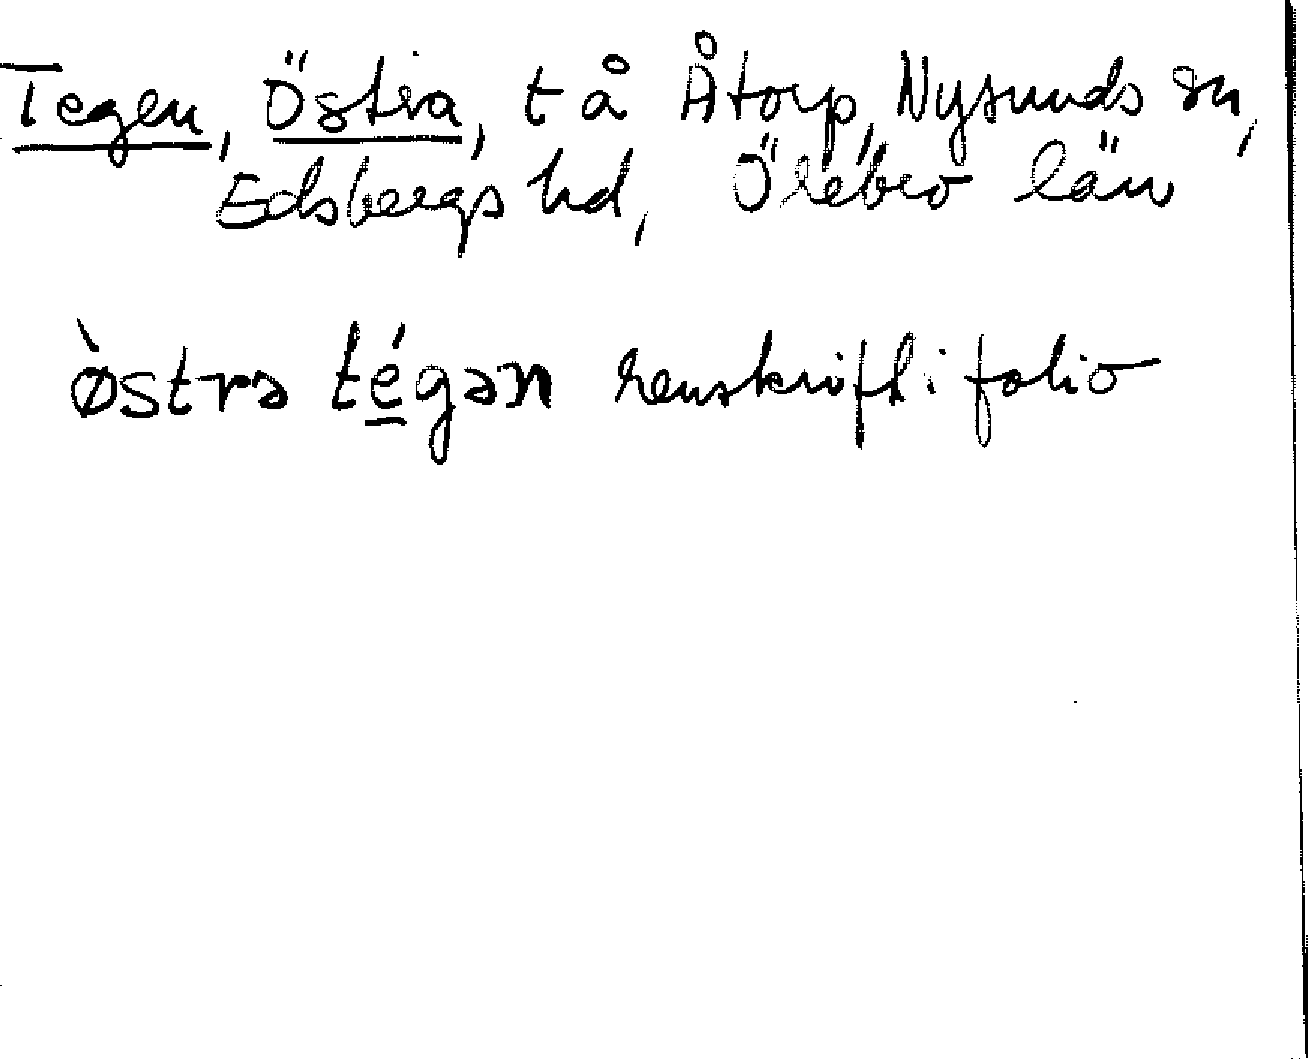 Tegen, Östra, t å Åtorp, Nysunds sn,
Edsbergs hd, Örebro län
ø̀strə té̱gən renskrift i folio